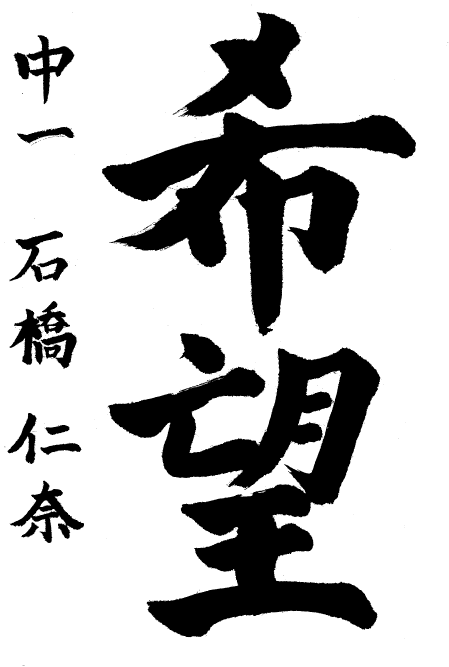 希望
中一 石橋 仁奈